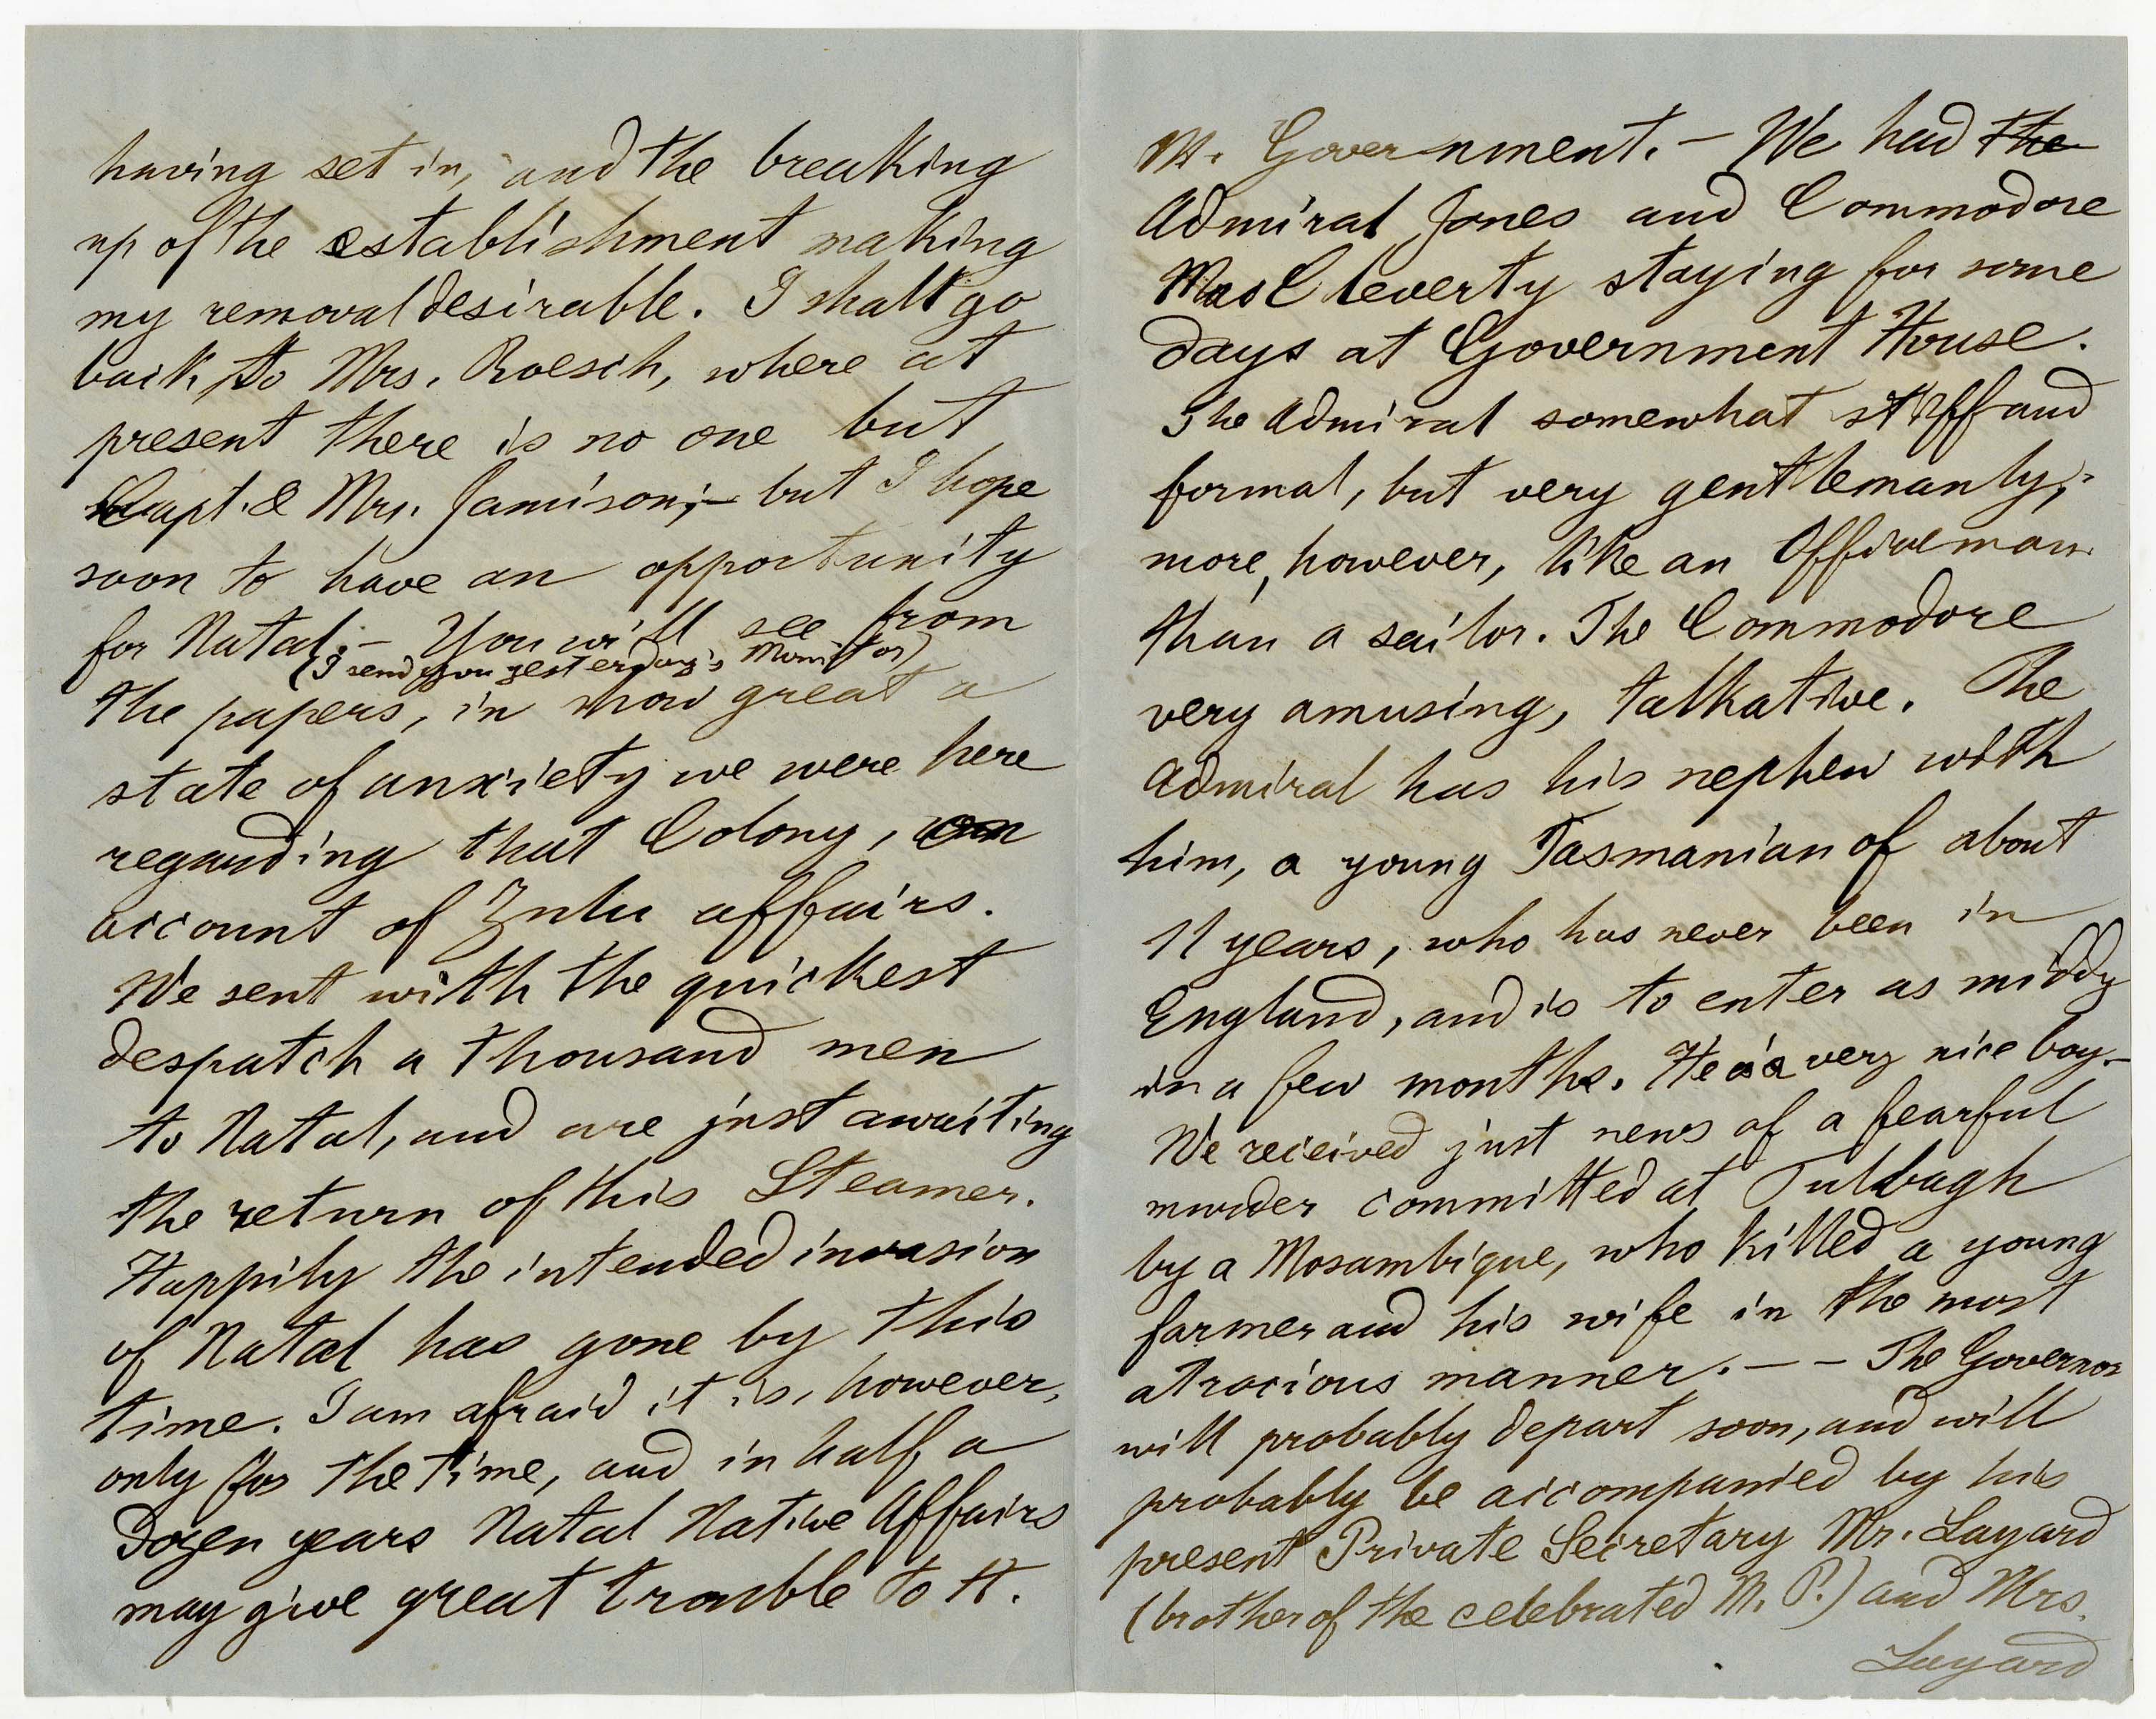 having set in, and the breaking
up of the establishment making
my removal desirable. I shall go
back to Mrs. Roesch, where at
present there is no one but
Capt. & Mrs. Jamison;— but I hope
soon to have an opportunity
for Natal.— You will see from
(I send you yesterday's Monitor)
the papers, in how great a
state of anxiety we were here
regarding that Colony, on
account of Zulu affairs.
We sent with the quickest
despatch a thousand men
to Natal, and are just awaiting
the return of this Steamer.
Happily the intended invasion
of Natal has gone by this
time. I am afraid it is, however,
only for the time, and in half a
dozen years Natal Native Affairs
may give great trouble to H.
M. Government.— We had the
Admiral Jones and Commodore
MacCleverty staying for some
days at Government House.
The Admiral somewhat stiff and
formal, but very gentlemanly;
more, however, like an Office man
than a sailor. The Commodore
very amusing, talkative. The
Admiral has his nephew with
him, a young Tasmanian of about
11 years, who has never been in
England, and is to enter as middy
in a few months. He is a very nice boy.—
We received just news of a fearful
murder committed at Tulbagh
by a Mosambique, who killed a young
farmer and his wife in the most
atrocious manner.— — The Governor
will probably depart soon, and will
probably be accompanied by his
present Private Secretary Mr. Layard
(brother of the celebrated M. P.) and Mrs.
Layard